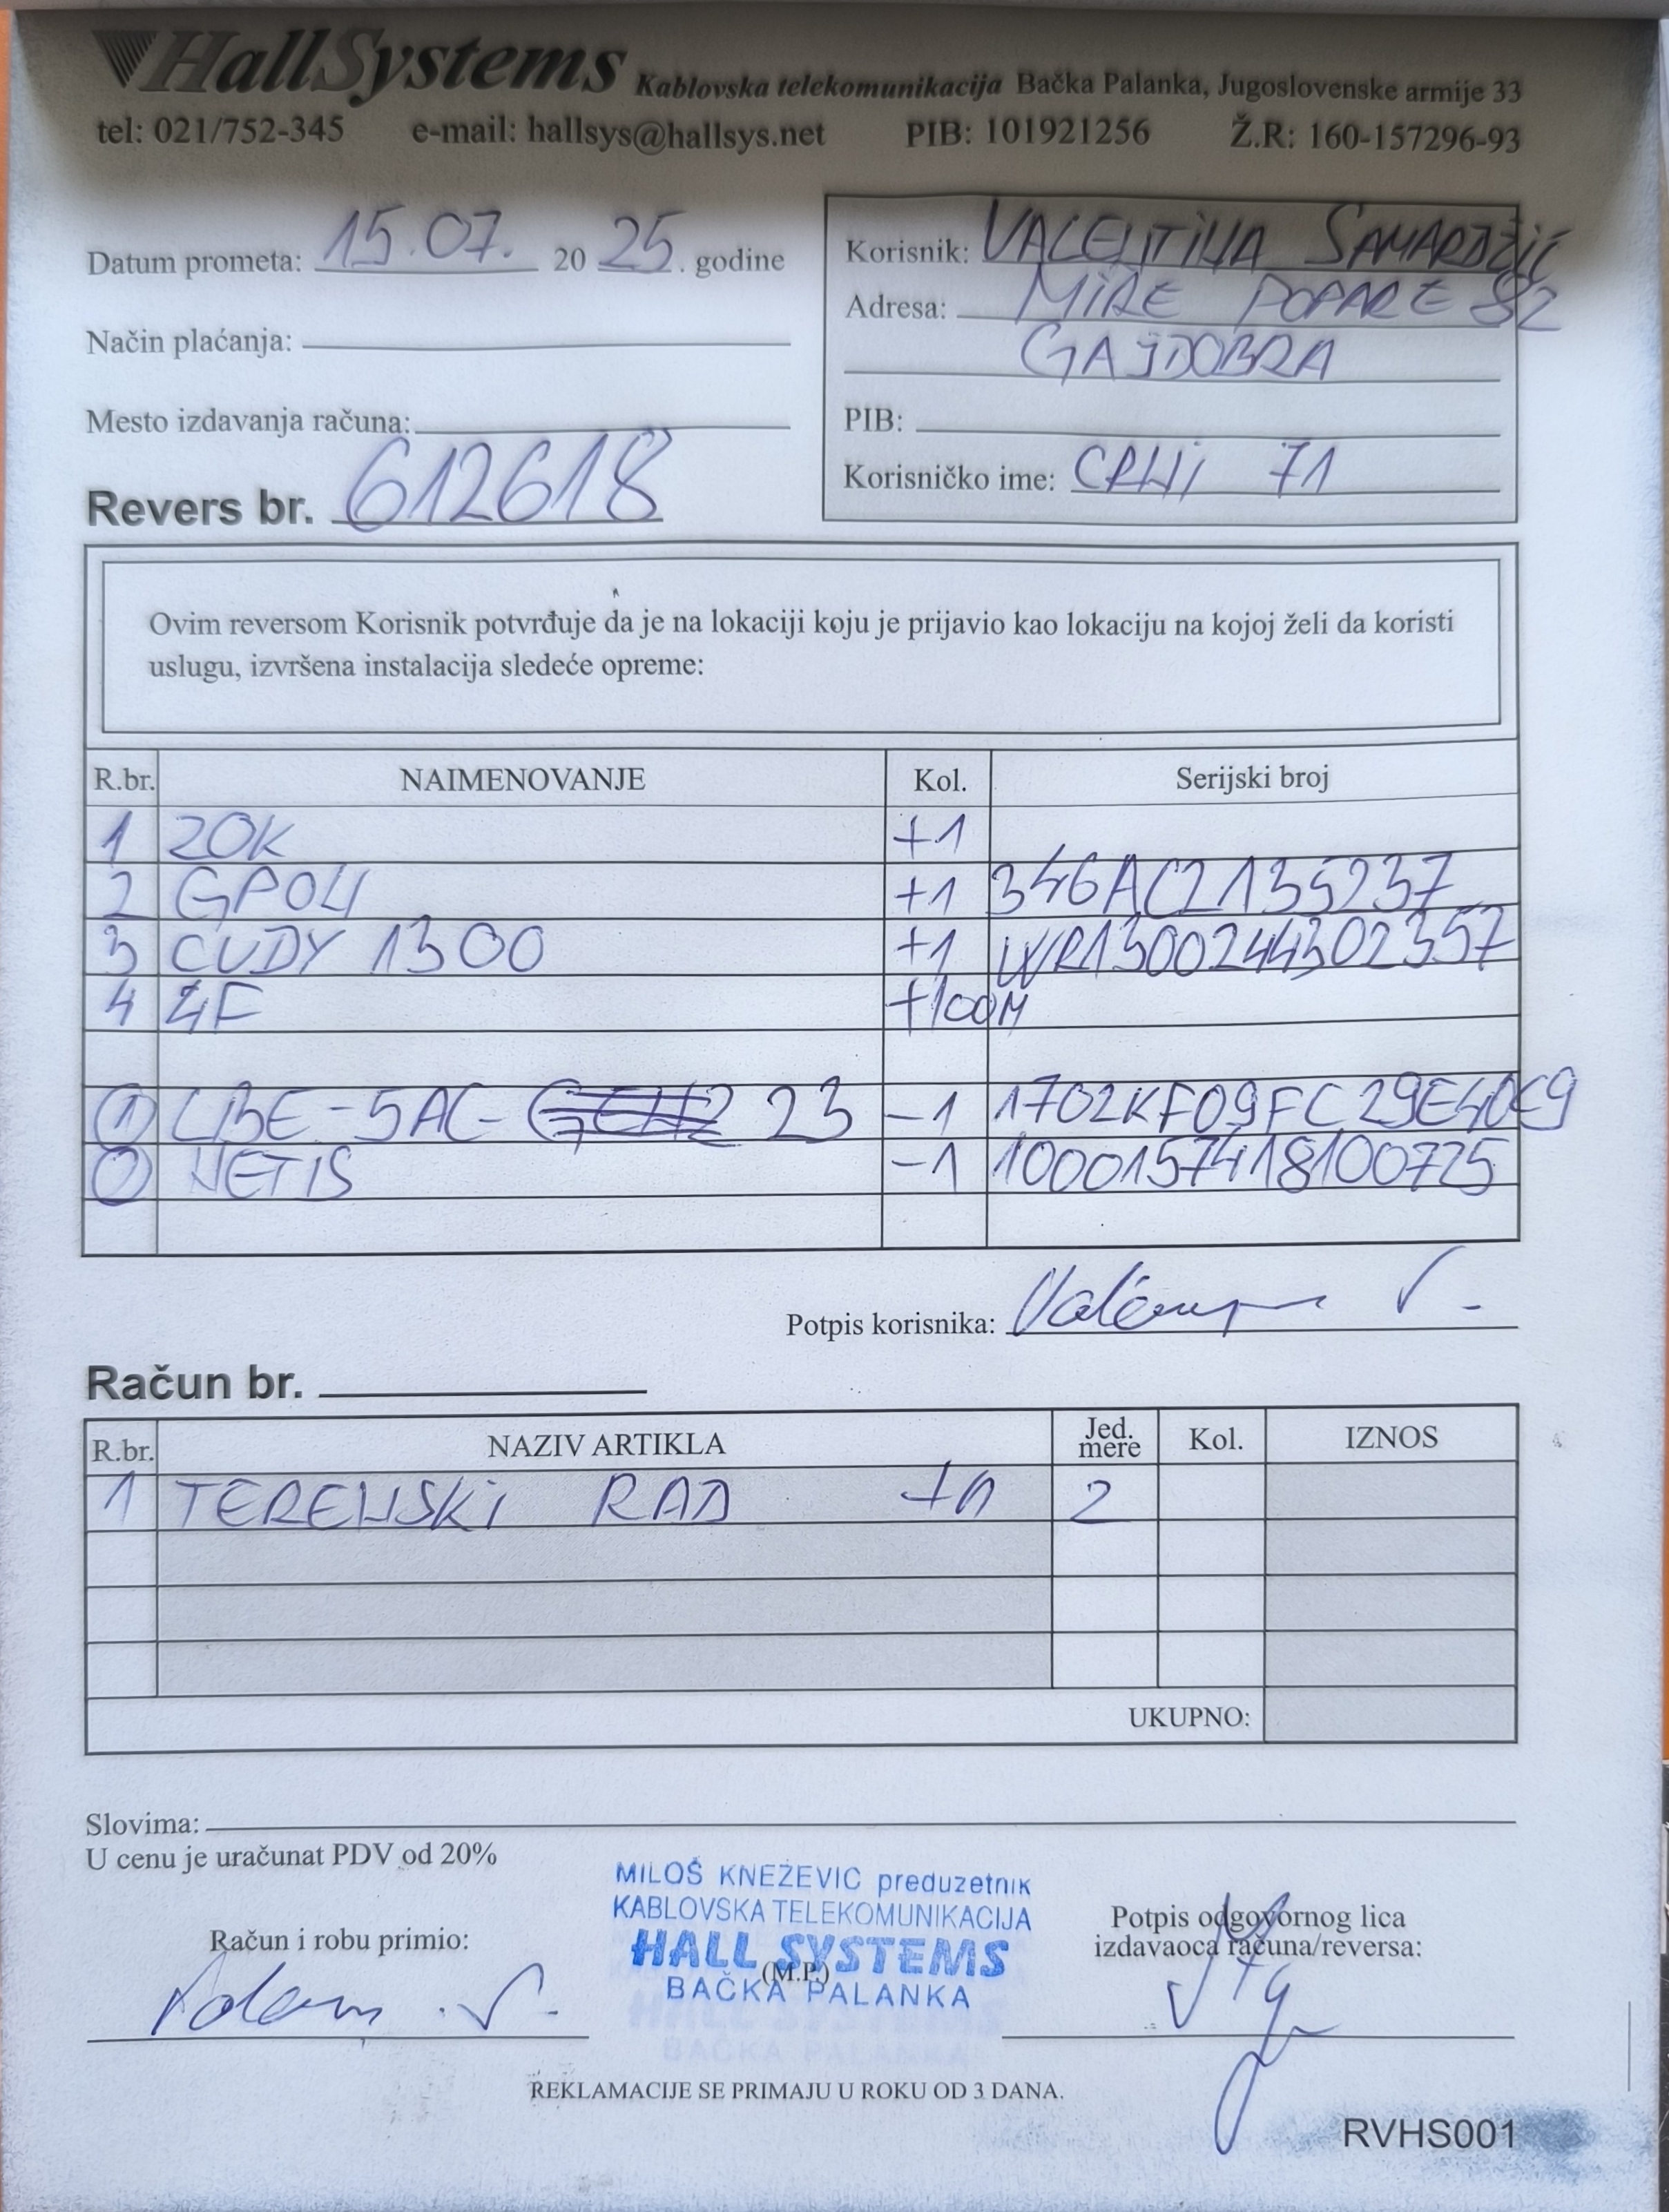 HallSystems Kablovska telekomunikacija Bačka Palanka, Jugoslovenske armije 33
tel: 021/752-345 e-mail: hallsys@hallsys.net PIB: 101921256 Ž.R: 160-157296-93
Datum prometa: 15.07. 20 25. godine
Način plaćanja:
Mesto izdavanja računa:
Revers br. 612618
Korisnik: VALENTINA SAMARDŽIĆ
Adresa: MIRE POPARE 82
GAJDOBRA
PIB:
Korisničko ime: CRNI 71
Ovim reversom Korisnik potvrđuje da je na lokaciji koju je prijavio kao lokaciju na kojoj želi da koristi
uslugu, izvršena instalacija sledeće opreme:
R.br. NAIMENOVANJE Kol. Serijski broj
1 ZOK +1
2 GPON +1 346AC2135237
3 CUDY 1300 +1 WR1300244302357
4 4F +100M
1 LBE-5AC- 23 -1 1702KF09FC29E40E9
2 NETIS -1 1000157418100725
Potpis korisnika:
Račun br.
R.br. NAZIV ARTIKLA Jed. mere Kol. IZNOS
1 TERENSKI RAD +1 2
UKUPNO:
Slovima:
U cenu je uračunat PDV od 20%
MILOŠ KNEŽEVIĆ preduzetnik
KABLOVSKA TELEKOMUNIKACIJA
HALL SYSTEMS
(M.P.)
BAČKA PALANKA
Račun i robu primio:
Potpis odgovornog lica
izdavaoca računa/reversa:
REKLAMACIJE SE PRIMAJU U ROKU OD 3 DANA.
RVHS001